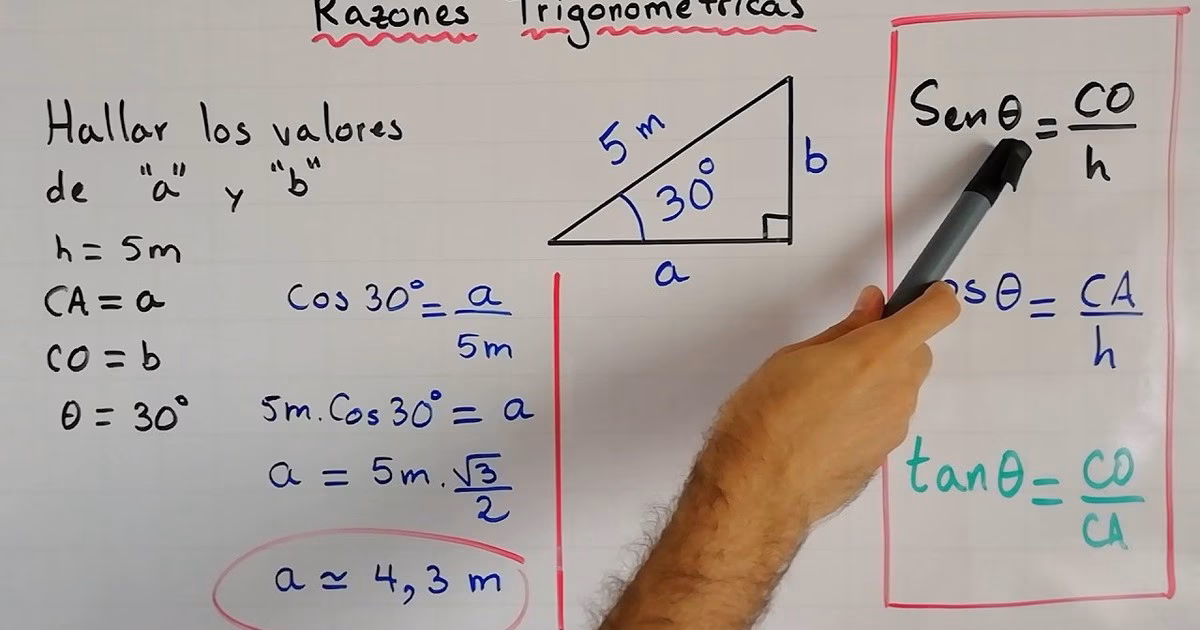 Razones Trigonométricas
Hallar los valores
de "a" y "b"
h = 5m
CA = a
CO = b
θ = 30°
Cos 30° = a/5m
5m.Cos30° = a
a = 5m.√3/2
a ≃ 4,3 m
5 m
30°
b
a
Senθ = CO/h
osθ = CA/h
tanθ = CO/CA